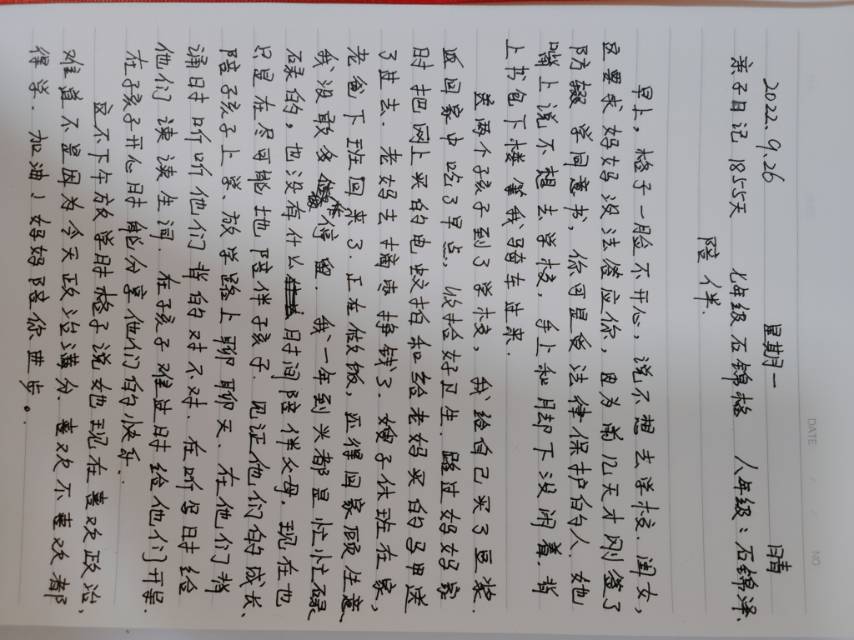 2022.9.26 星期一 晴
亲子日记 1855天 七年级石锦格 八年级:石锦泽.
陪伴.
早上,格子一脸不开心,说不想去学校.闺女,
这要求妈妈没法答应你,因为前几天才刚签了
防辍学同意书,你可是受法律保护的人.她
嘴上说不想去学校,手上和脚却下没闲着.背
上书包下楼等我骑车过来.
送两个孩子到了学校,我给自己买了豆浆.
返回家中吃了早点,收拾好卫生.路过妈妈家
时把网上买的电蚊拍和给老妈买的马甲送
了进去.老妈去摘枣挣钱了.嫂子休班在家,
老爸下班回来了.正在做饭,还得回家顾生意
我没敢多做停留.我一年到头都是忙忙碌
碌的,也没有什么时间陪伴父母.现在也
只是在尽可能地陪伴孩子.见证他们的成长、
陪子孩子上学、放学路上聊聊天.在他们背
诵时听听他们背的对不对.在听写时给
他们读读生词.在子孩子难过时给他们开导.
在子孩子开心时能分享他们的快乐.
这不下午放学时格子说她现在喜欢政治,
难道不是因为今天政治满分.喜欢不喜欢都
得学.加油!妈妈陪你进步。
DATE
NO